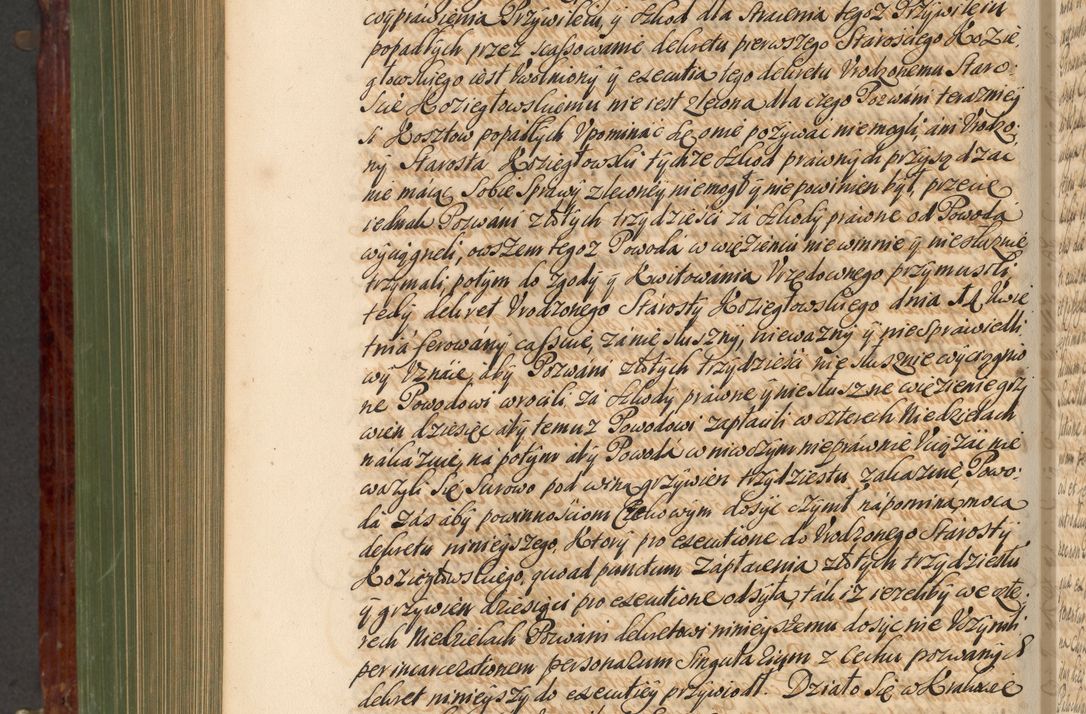 wyprawienia Przywileiu, y szkod dla stracenia tegoz Przywileiu
popadłych przez scassowanie dekretu pierwszego Staroscięgo Kozie,
głowskiego iest uwolniony y executia tego dekretu Urodzonemu Staro:
scie Koziegłowskiemu nie iest zlecona dla czego Pozwáni teraznieyy
si Kosztow popadłych Upominac się, o nie pozywac nie mogli, ani Urodzo,
ny Starosta Koziegłowski tychze szkod prawnych przysądzac
nie maiąc Sobie Sprawy zleconey nie mogł y nie powinien był, przecie
iednak Pozwáni złotych trzydziesci zá szkody prawne od Powoda
wyciągneli, owszem tegoz Powoda w więzieniu niewinnie y niesłusznie
trzymali, potym do zgody y Kwitowánia Urzędownego przymusili,
tedy dekret Urodzonego Stárosty Koziegłowskiego dnia 14 Kwie
tniá ferowány cassuie, zá niesłuszny, niewazny y niesprawiedli
wy Uznáie, aby Pozwáni złotych trzydziesci niesłusznie wyciągnio
ne Powodowi wrocili, za szkody prawne y niesłuszne więzienie grzy
wien dziesięc aby temuz Powodowi zapłacili w czterech Niedzielach
nákázuie, na potym aby Powodá w niwczym nieprawnie Uciązác nie
wazyli się, surowo pod winą grzywien trzydziestu zakazuie, Powo:
da zás aby powinnosciom Cechowym dosyc czynił napomina mocą
dekretu ninieyszego. Ktory pro executione do Urodzonego Starosty
Koziegłowskiego, quoad punctum zapłacenia złotych trzydziestu
y grzywien dziesięci pro executione odsyła, tak iz iezeliby we czte,
rech Niedzielach Pozwáni dekretowi ninieyszemu dosyc nie Uczynili
per incarcerationem personarum singularizym z Cechu pozwanych
dekret ninieyszy do executiey przywiodł. Działo się w Krakowie